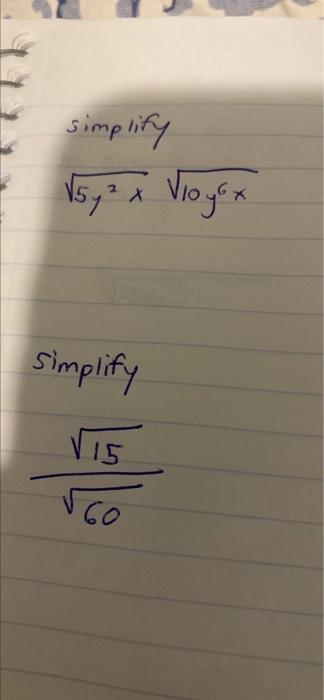 simplify
√5y² x √10y⁶x
simplify
√15
√60